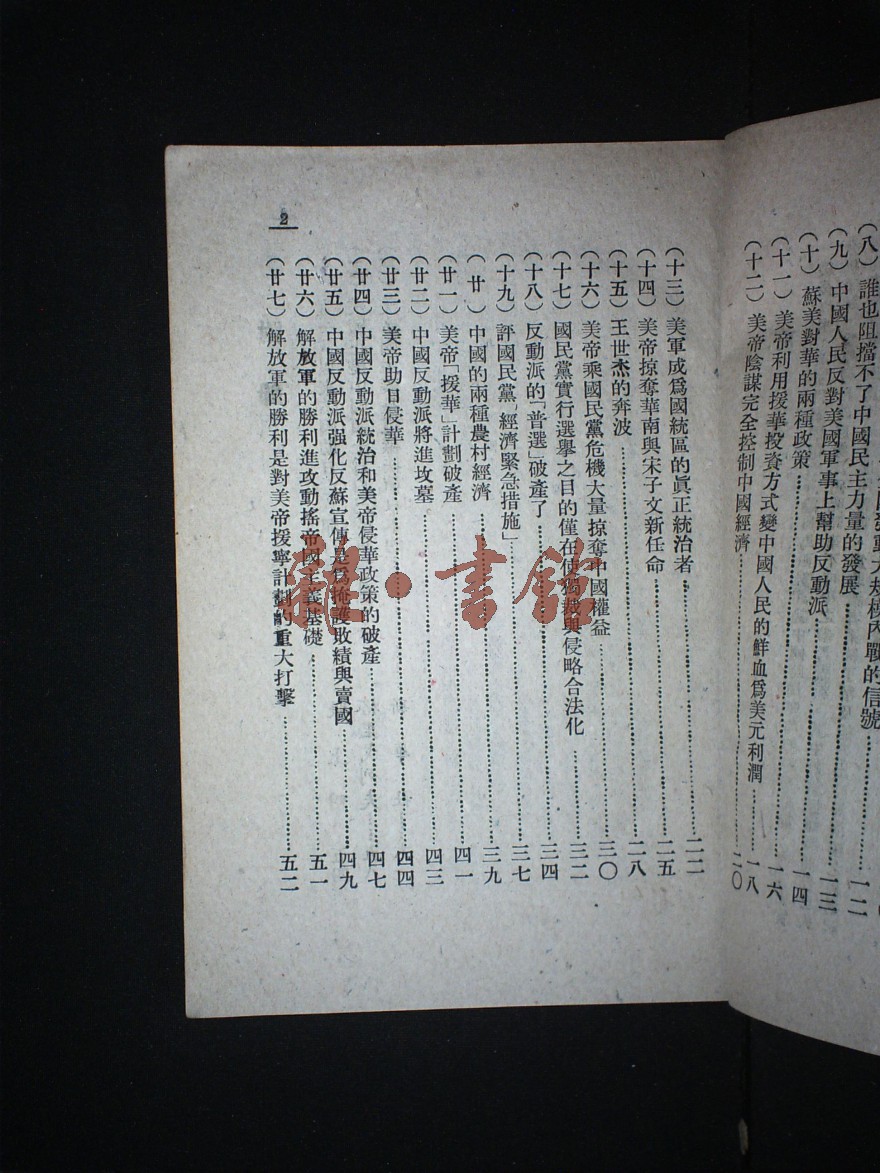 發動大規模內戰的信號
（八）誰也阻擋不了中國民主力量的發展……一二
（九）中國人民反對美國軍事上幫助反動派……一三
（十）蘇美對華的兩種政策……一四
（十一）美帝利用援華投資方式變中國人民的鮮血爲美元利潤……一六
（十二）美帝陰謀完全控制中國經濟……一八
二〇
（十三）美軍成爲國統區的眞正統治者……二二
（十四）美帝掠奪華南與宋子文新任命……二五
（十五）王世杰的奔波……二八
（十六）美帝乘國民黨危機大量掠奪中國權益……三〇
（十七）國民黨實行選舉之目的僅在使獨裁與侵略合法化……三二
（十八）反動派的「普選」破產了……三四
（十九）評國民黨「經濟緊急措施」……三七
（廿）中國的兩種農村經濟……三九
（廿一）美帝「援華」計劃破產……四一
（廿二）中國反動派將進坟墓……四三
（廿三）美帝助日侵華……四四
（廿四）中國反動派統治和美帝侵華政策的破產……四七
（廿五）中國反動派强化反蘇宣傳是爲掩護敗績與賣國……四九
（廿六）解放軍的勝利進攻動搖帝國主義基礎……五一
（廿七）解放軍的勝利是對美帝援寧計劃的重大打擊……五二
2
龍·書館